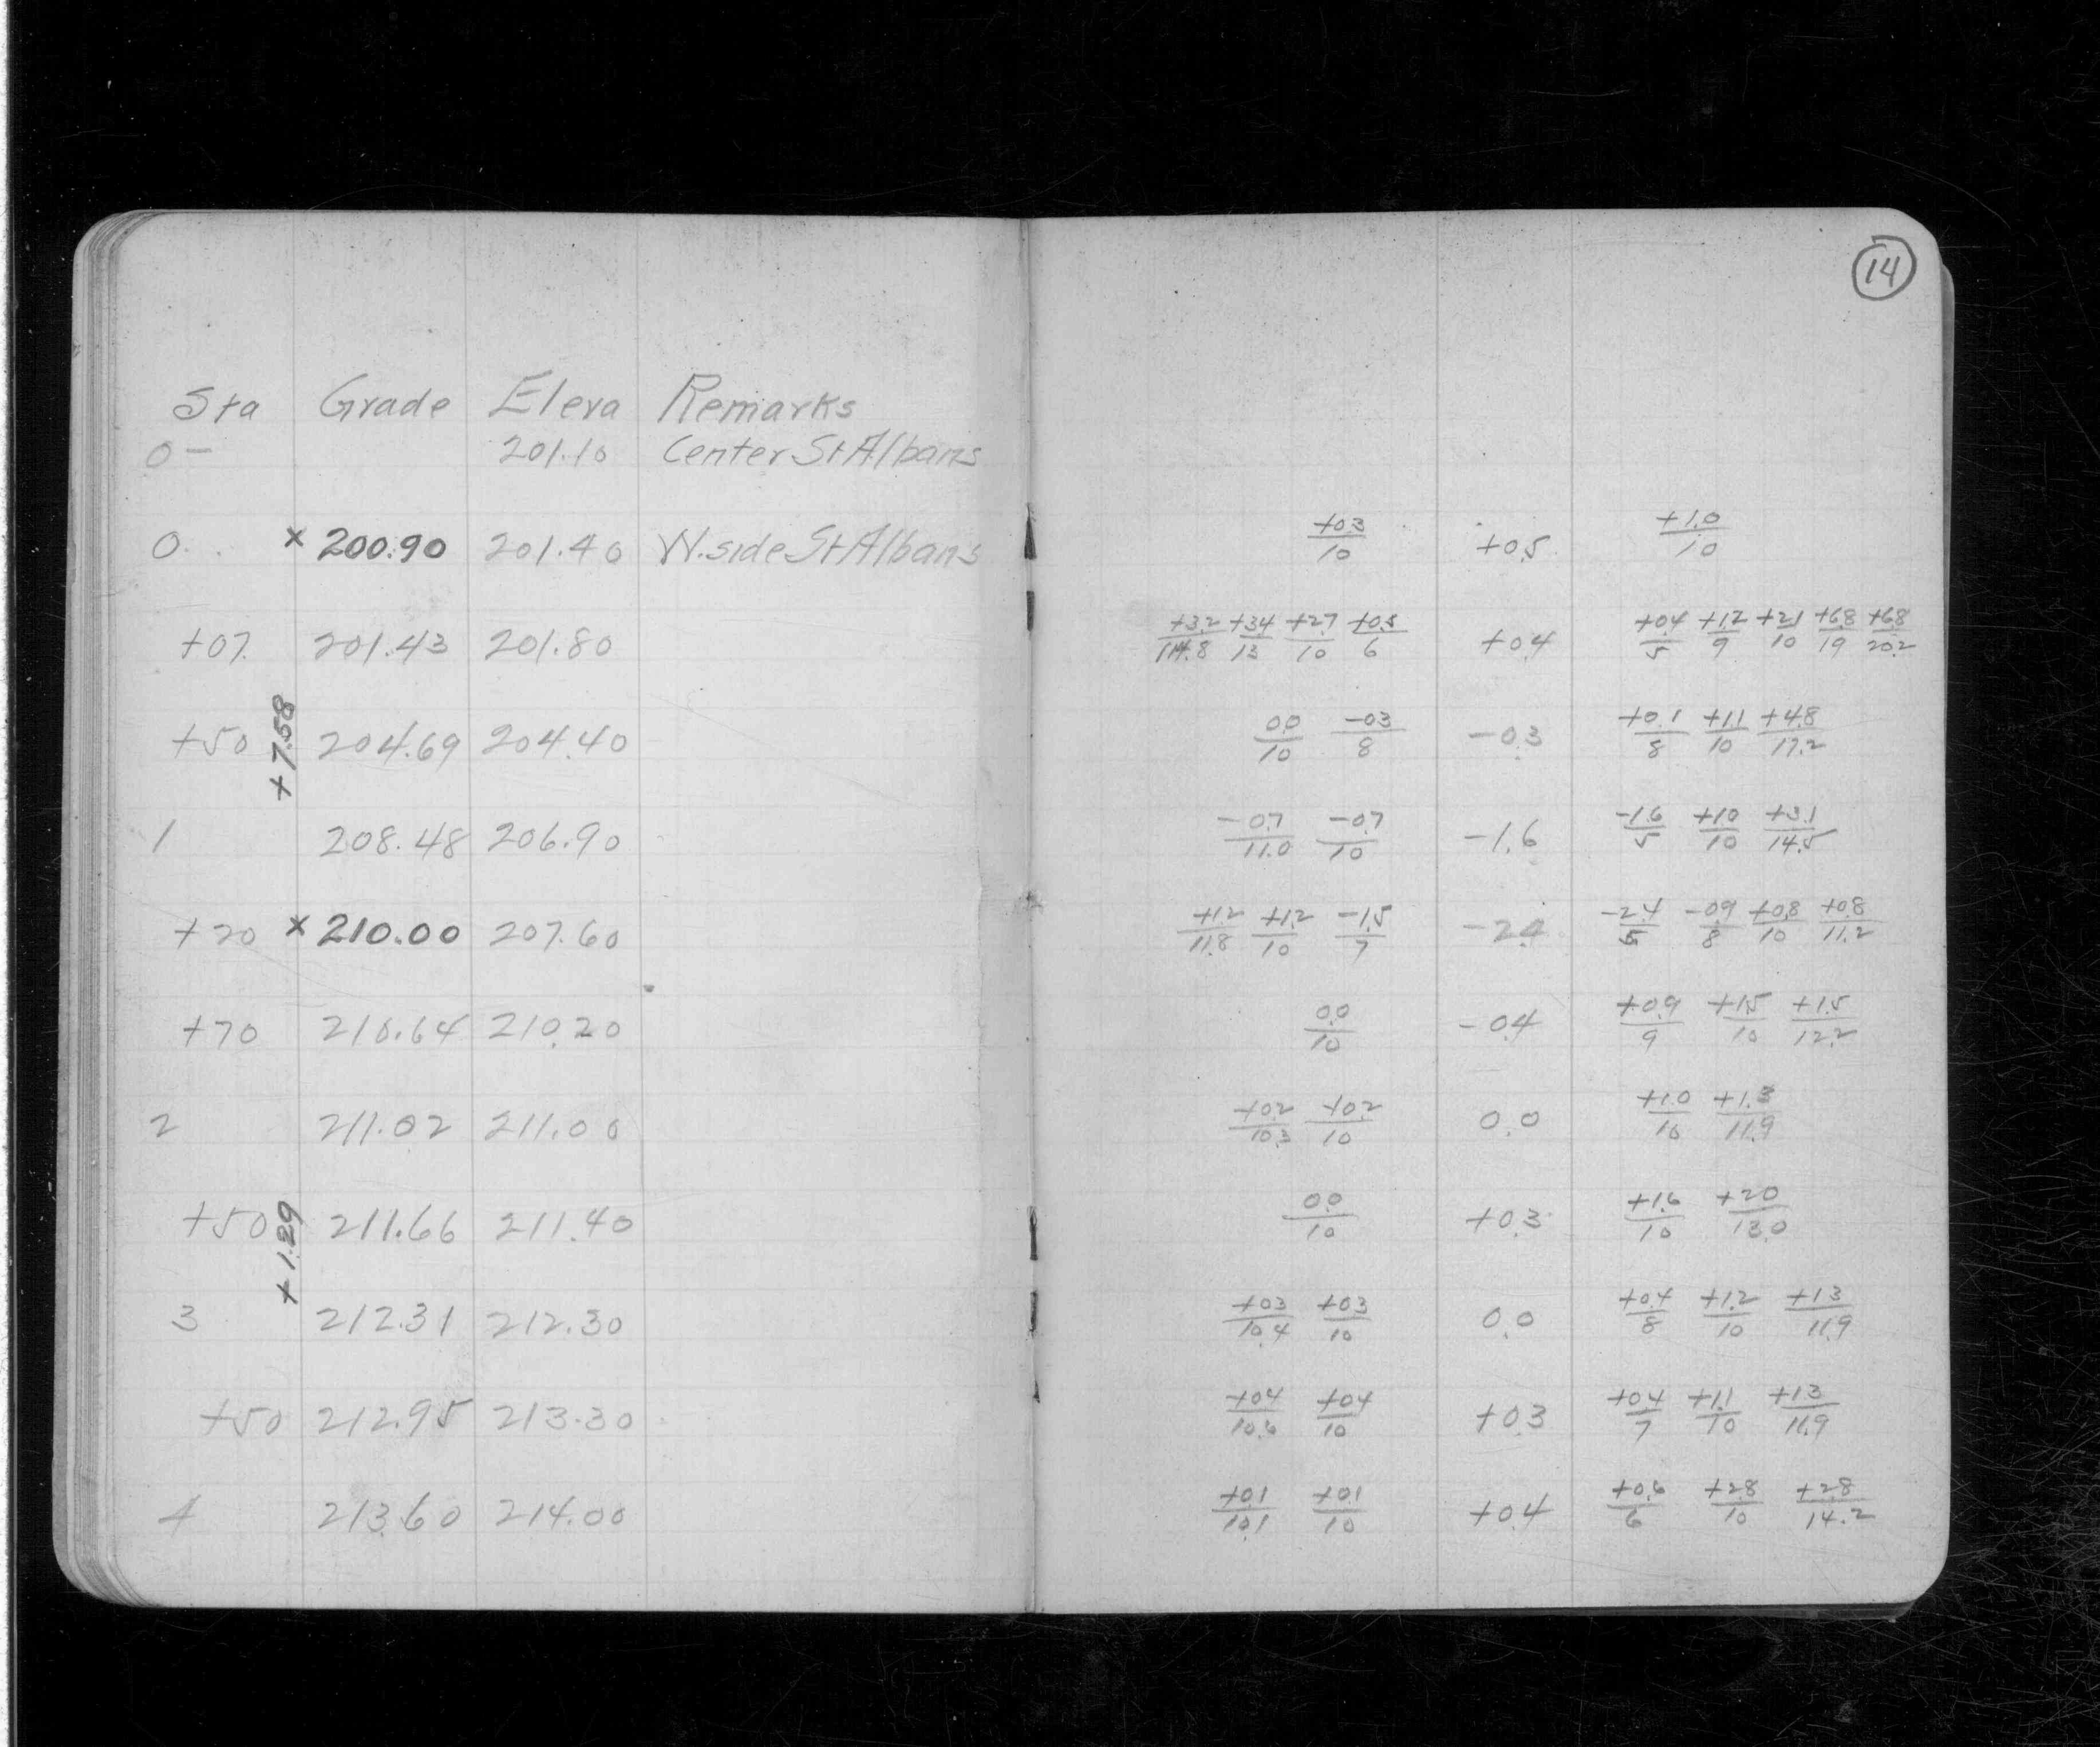 14
Sta Grade Eleva Remarks
0- 201.10 Center St Albans
0 × 200.90 201.40 W. side St Albans +0.3/10 +0.5 +1.0/10
+07 201.43 201.80 +3.2/14.8 +3.4/13 +2.7/10 +0.5/6 +0.4 +0.4/5 +1.2/9 +2.1/10 +6.8/19 +6.8/20.2
+7.58
+50 204.69 204.40 0.0/10 -0.3/8 -0.3 +0.1/8 +1.1/10 +4.8/17.2
1 208.48 206.90 -0.7/11.0 -0.7/10 -1.6 -1.6/5 +1.0/10 +3.1/14.5
+20 × 210.00 207.60 +1.2/11.8 +1.2/10 -1.5/7 -2.4 -2.4/5 -0.9/8 +0.8/10 +0.8/11.2
+70 210.64 210.20 0.0/10 -0.4 +0.9/9 +1.5/10 +1.5/12.2
2 211.02 211.00 +0.2/10.3 +0.2/10 0.0 +1.0/10 +1.3/11.9
+1.29
+50 211.66 211.40 0.0/10 +0.3 +1.6/10 +2.0/13.0
3 212.31 212.30 +0.3/10.4 +0.3/10 0.0 +0.4/8 +1.2/10 +1.3/11.9
+50 212.95 213.30 +0.4/10.6 +0.4/10 +0.3 +0.4/7 +1.1/10 +1.3/11.9
4 213.60 214.00 +0.1/10.1 +0.1/10 +0.4 +0.6/6 +2.8/10 +2.8/14.2